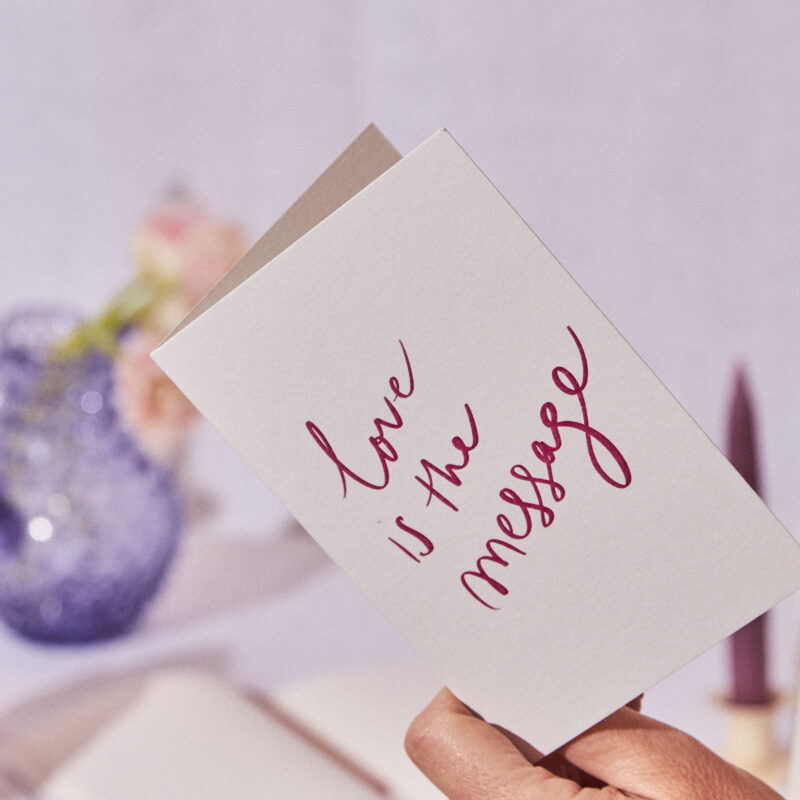 love
is the
message